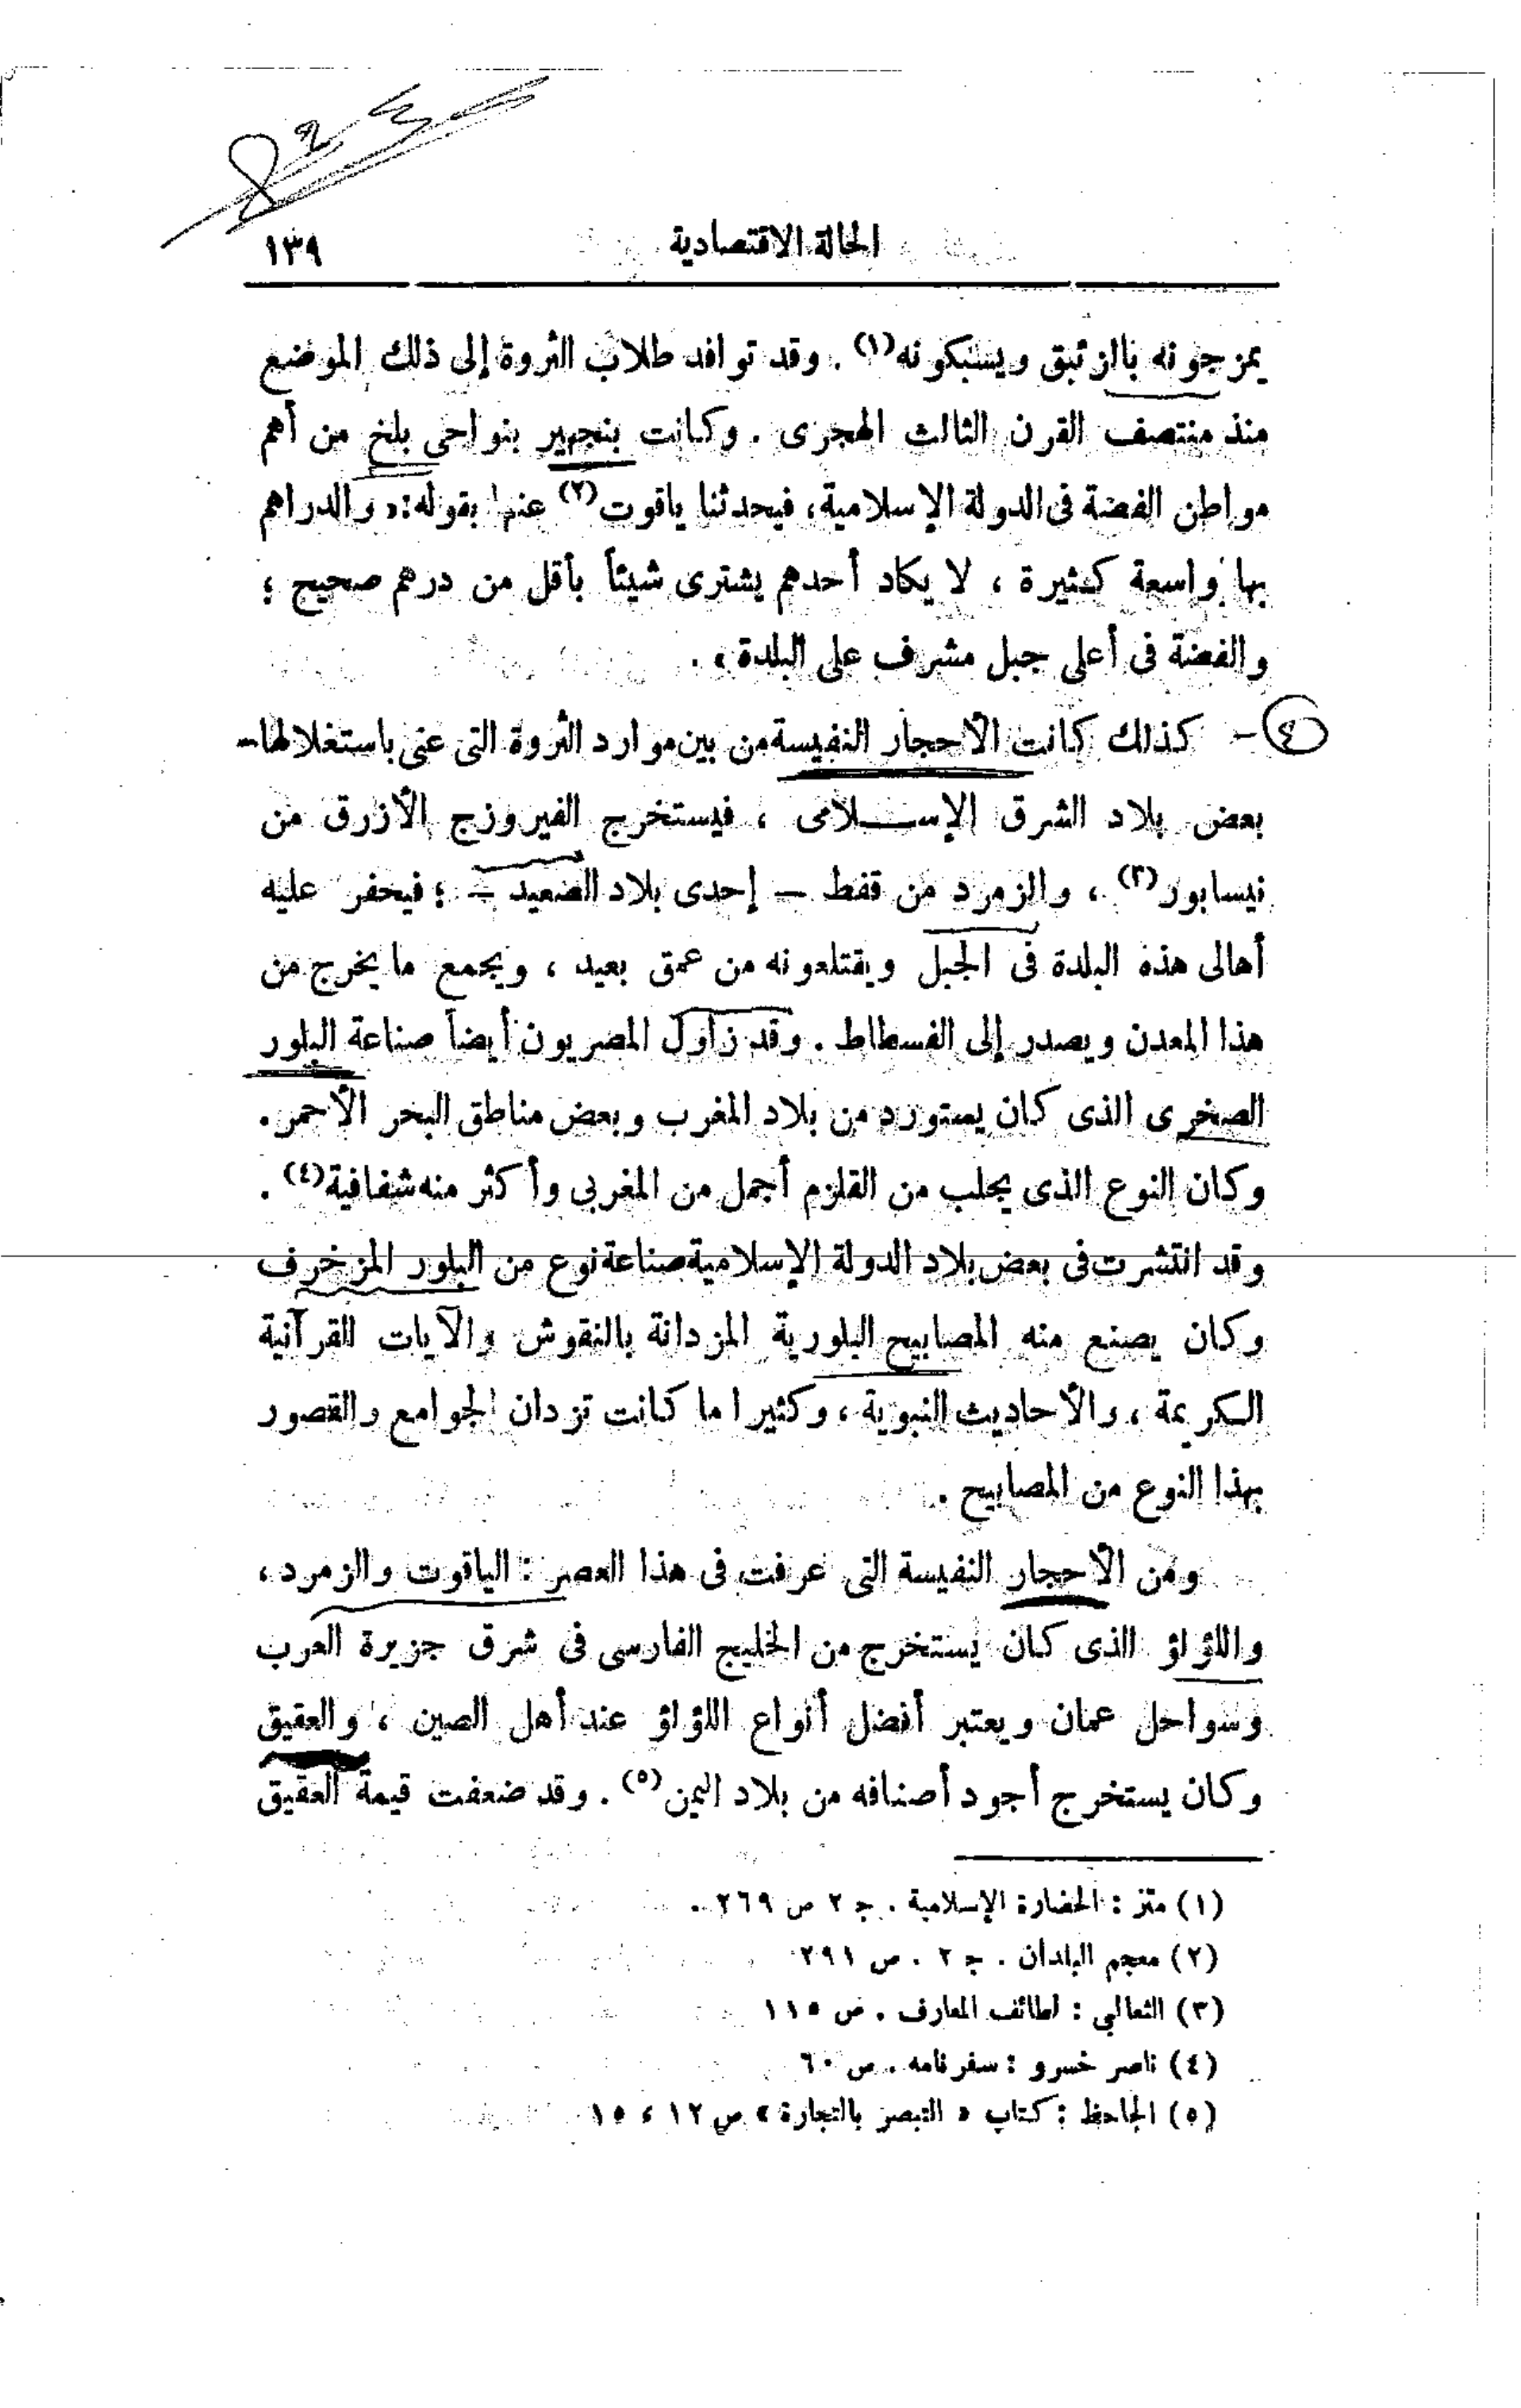 الحالة الاقتصادية
١٣٩
يمزجونه بالزئبق ويسبكونه(١) . وقد توافد طلاب الثروة إلى ذلك الموضع
منذ منتصف القرن الثالث الهجرى . وكانت بنجهير بنواحى بلخ من أهم
مواطن الفضة فى الدولة الإسلامية ، فيحدثنا ياقوت(٢) عنها بقوله : « والدراهم
بها واسعة كثيرة ، لا يكاد أحدهم يشترى شيئاً بأقل من درهم صحيح ؛
والفضة فى أعلى جبل مشرف على البلدة » .
٤ - كذلك كانت الأحجار النفيسة من بين موارد الثروة التى عنى باستغلالها -
بعض بلاد الشرق الإسلامى ، فيستخرج الفيروزج الأزرق من
نيسابور(٣) ، والزمرد من قفط – إحدى بلاد الصعيد – ؛ فيحفر عليه
أهالى هذه البلدة فى الجبل ويقتلعونه من عمق بعيد ، ويجمع ما يخرج من
هذا المعدن ويصدر إلى الفسطاط . وقد زاول المصريون أيضاً صناعة البلور
الصخرى الذى كان يستورد من بلاد المغرب وبعض مناطق البحر الأحمر .
وكان النوع الذى يجلب من القلزم أجمل من المغربى وأكثر منه شفافية(٤) .
وقد انتشرت فى بعض بلاد الدولة الإسلامية صناعة نوع من البلور المزخرف
وكان يصنع منه المصابيح البلورية المزدانة بالنقوش والآيات القرآنية
الكريمة ، والأحاديث النبوية ، وكثيرا ما كانت تزدان الجوامع والقصور
بهذا النوع من المصابيح .
ومن الأحجار النفيسة التى عرفت فى هذا العصر : الياقوت والزمرد ،
واللؤلؤ الذى كان يستخرج من الخليج الفارسى فى شرق جزيرة العرب
وسواحل عمان ويعتبر أفضل أنواع اللؤلؤ عند أهل الصين ، والعقيق
وكان يستخرج أجود أصنافه من بلاد اليمن(٥) . وقد ضعفت قيمة العقيق
(١) متز : الحضارة الإسلامية . ج ٢ ص ٢٦٩ .
(٢) معجم البلدان . ج ٢ . ص ٢٩١
(٣) الثعالبي : لطائف المعارف . ص ١١٥
(٤) ناصر خسرو : سفر نامه . ص ٦٠
(٥) الجاحظ : كتاب « التبصر بالتجارة » ص ١٢ ، ١٥